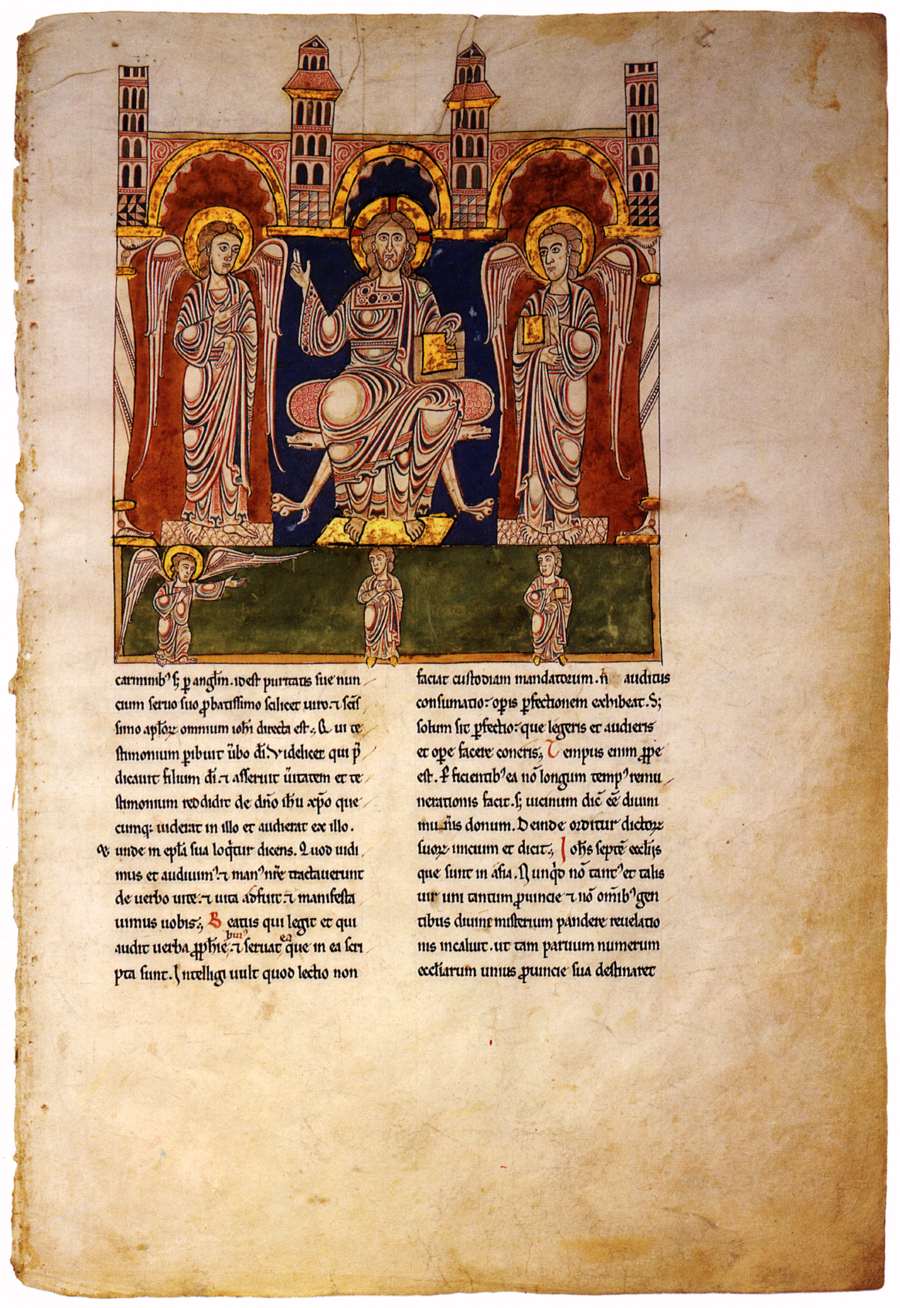 carminib᷒ ꝗ ꝑ angl̄m. idest puritatis sue nun
cium seruo suo ꝓbatissimo scilicet uiro. ⁊ sc̄is
simo apl̄oꝝ omnium ioh̄i directa est. Qui te
stimonium pibuit ūbo dī. Videlicet qui p̄
dicauit filium dī. ⁊ asseruit ūitatem et te
stimonium reddidit de dn̄o ih̄u xp̄o que
cumq; uiderat in illo et audierat ex illo.
unde in epl̄a sua loq̄tur dicens. Quod uidi
mus et audiuim᷒ ⁊ man᷒ nr̄e tractauerunt
de uerbo uite. ⁊ uita adfuit. ⁊ manifesta
uimus uobis. Beatus qui legit et qui
audit uerba ꝓph̄ie ⁊ seruat ea que in ea scri
pta sunt. Intelligi uult quod lectio non
faciat custodiam mandatorum. n̄ auditus
consumatio operis ꝑfectionem exhibeat. S;
solum sit ꝑfectio que legeris et audieris
et ope facere coneris. Tempus enim ꝓpe
est. ꝑficientib᷒ ea nō longum temp᷒ remu
nerationis facit. s; uicinum dic̄ ēē diuini
mun̄is donum. Deinde orditur dictoꝝ
suoꝝ inicium et dicit. Ioh̄s septē eccl̄iis
que sunt in asia. Nunq̄d nō tant᷒ et talis
uir uni tantum ꝓuincie ⁊ nō om̄ib᷒ gen
tibus diuini misterium pandere reuelatio
nis incaluit. ut tam paruum numerum
eccl̄iarum unius ꝓuincie sua destinaret